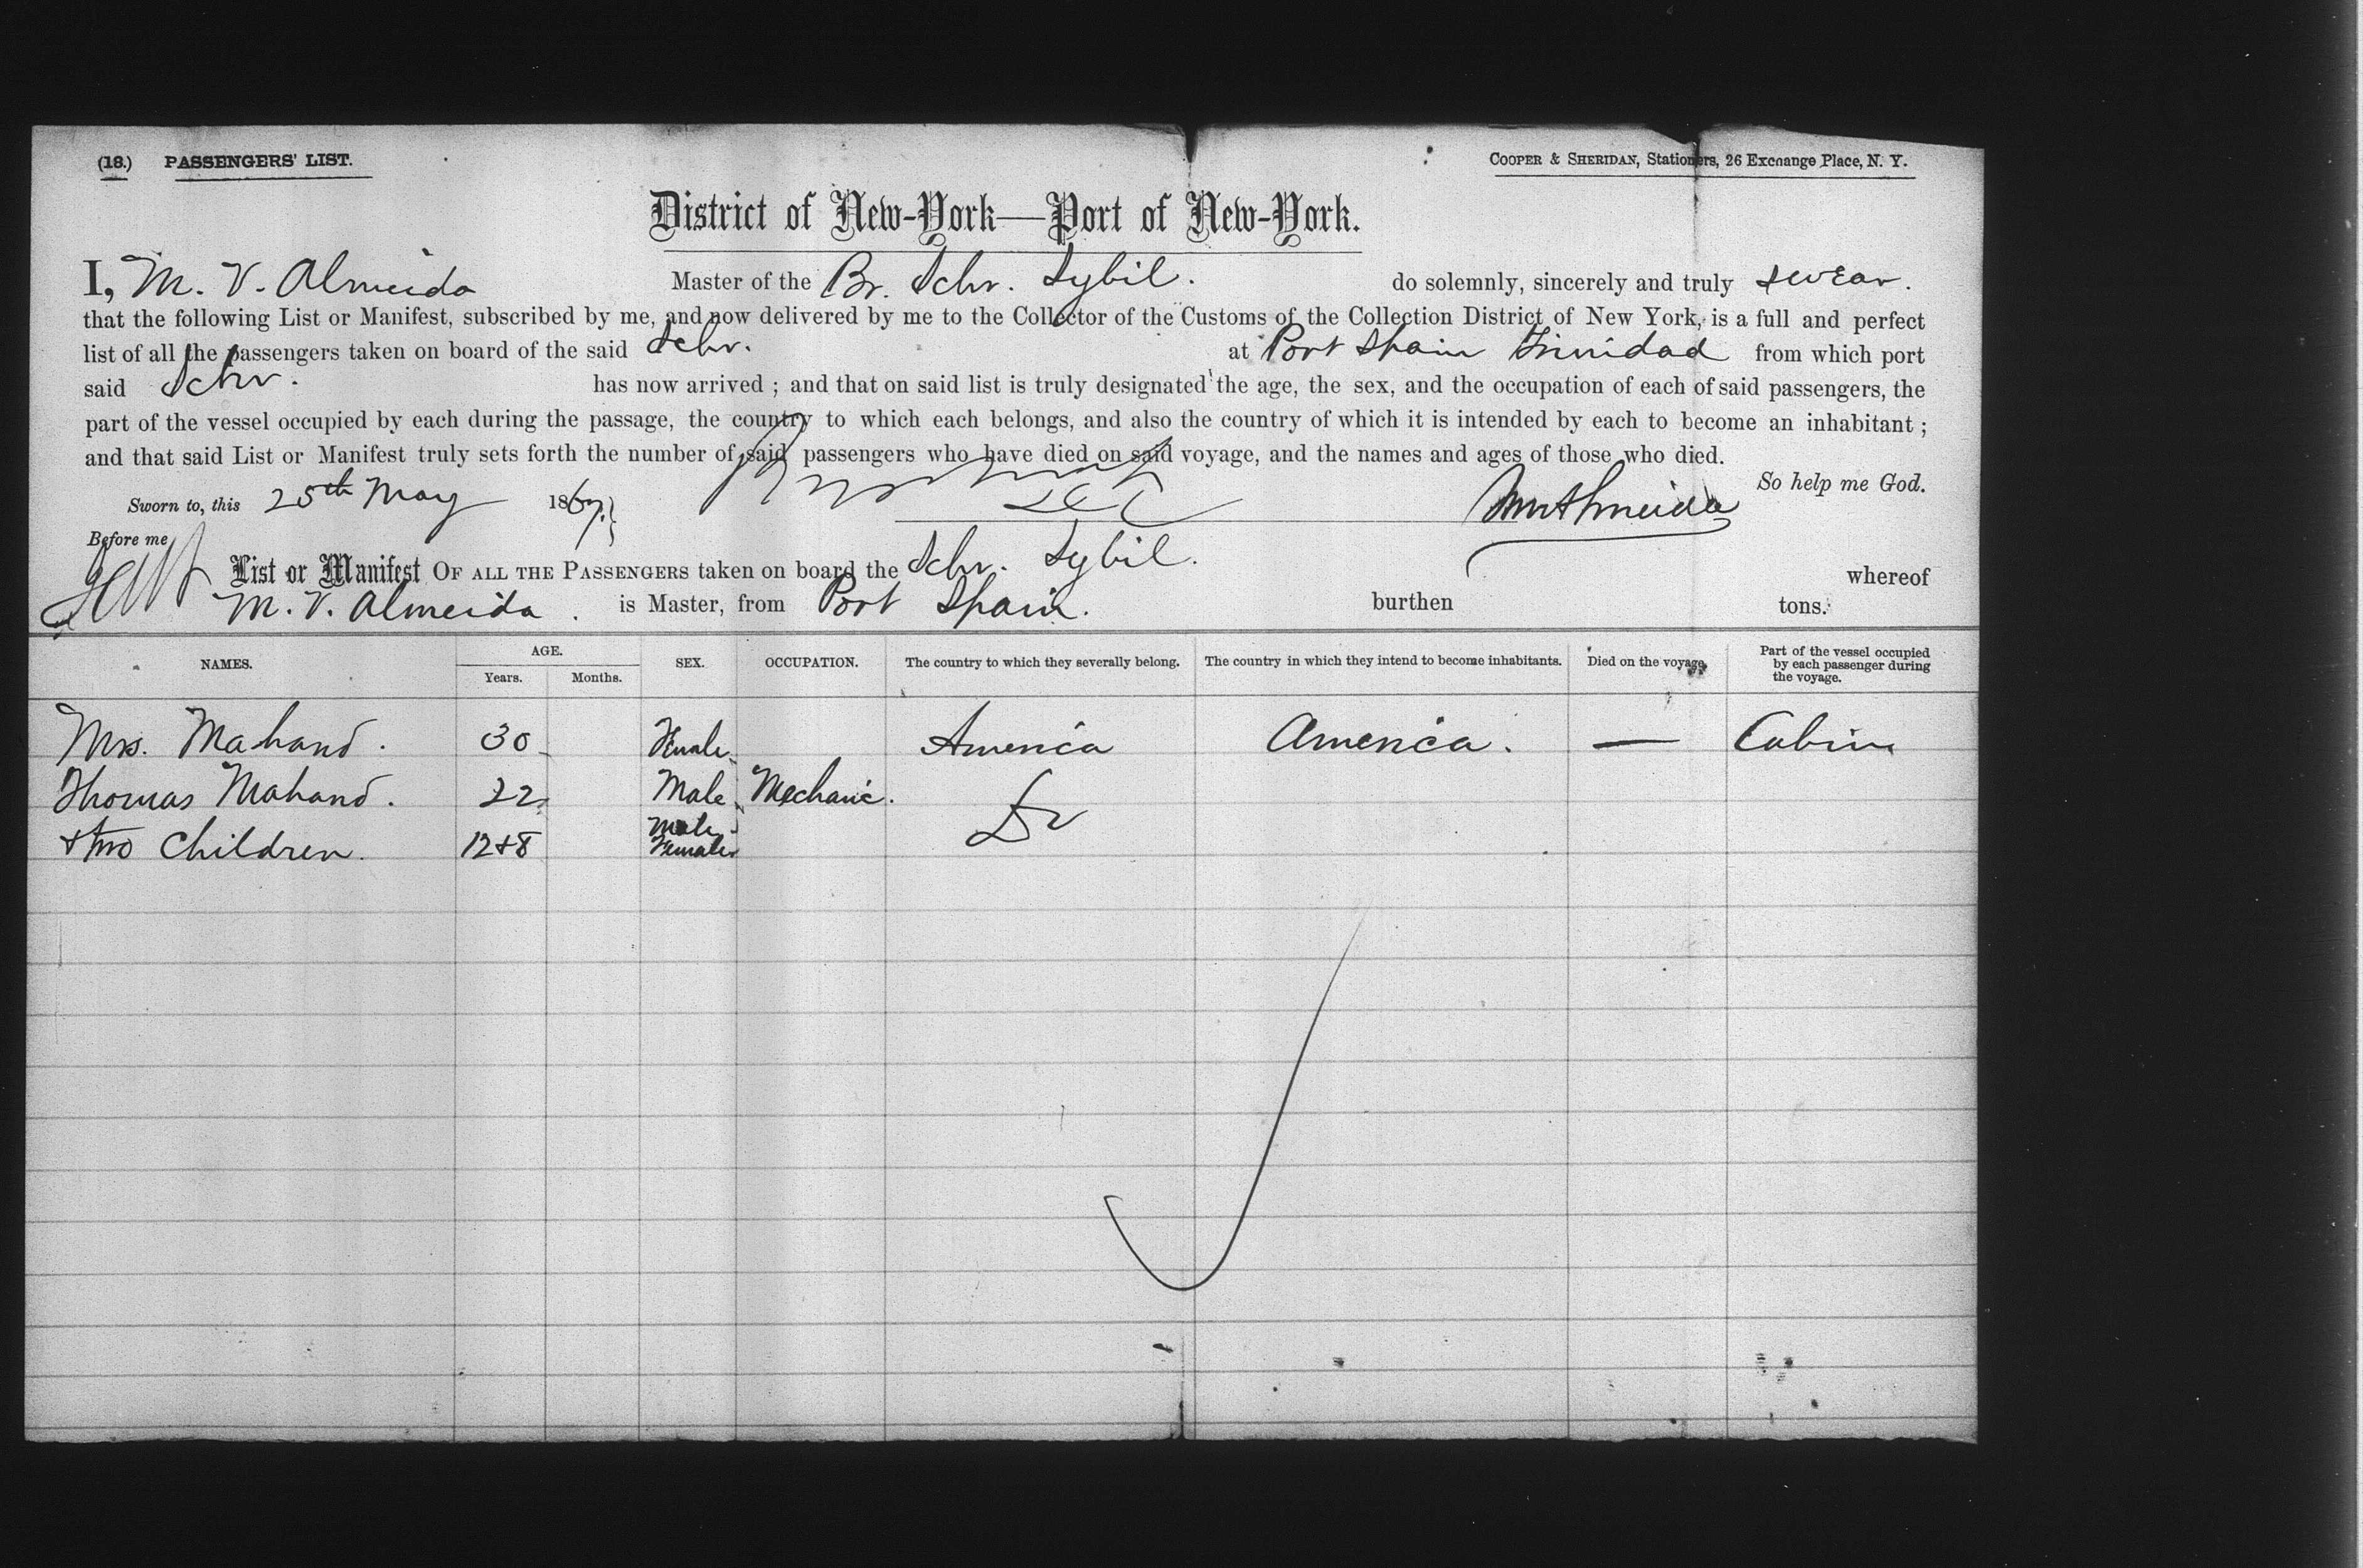 (18.) PASSENGERS' LIST. COOPER & SHERIDAN, Stationers, 26 Exchange Place, N. Y.
District of New-York—Port of New-York.
I, M. V. Almeida Master of the Br. Schr. Sybil. do solemnly, sincerely and truly swear.
that the following List or Manifest, subscribed by me, and now delivered by me to the Collector of the Customs of the Collection District of New York, is a full and perfect
list of all the passengers taken on board of the said Schr. at Port Spain Trinidad from which port
said Schr. has now arrived ; and that on said list is truly designated the age, the sex, and the occupation of each of said passengers, the
part of the vessel occupied by each during the passage, the country to which each belongs, and also the country of which it is intended by each to become an inhabitant ;
and that said List or Manifest truly sets forth the number of said passengers who have died on said voyage, and the names and ages of those who died.
So help me God.
Sworn to, this 25th May 1867. MVAlmeida
Before me
List or Manifest OF ALL THE PASSENGERS taken on board the Schr. Sybil. whereof
M. V. Almeida. is Master, from Port Spain. burthen tons.
NAMES. AGE. Years. Months. SEX. OCCUPATION. The country to which they severally belong. The country in which they intend to become inhabitants. Died on the voyage. Part of the vessel occupied by each passenger during the voyage.
Mrs. Mahand. 30 Female America America. — Cabin
Thomas Mahand. 22 Male Mechanic. Do
+ two Children. 12+8 Male Female